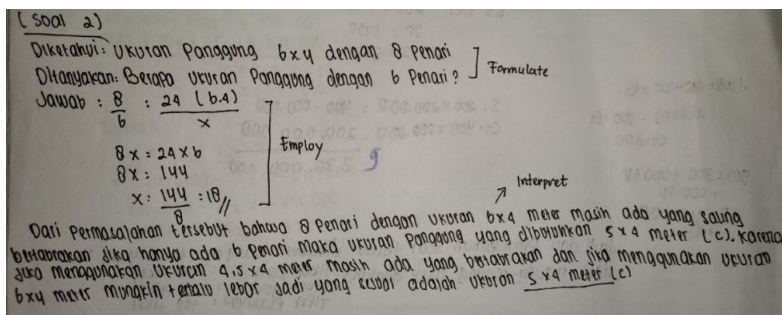 (Soal 2)
Diketahui: Ukuran Panggung 6x4 dengan 8 Penari
Ditanyakan: Berapa Ukuran Panggung dengan 6 Penari? ] Formulate
Jawab : 8/6 : 24 (6.4)/x
8x : 24 x 6
8x : 144
x : 144/8 : 18 //
Employ
9
Interpret
Dari Permasalahan tersebut bahwa 8 Penari dengan Ukuran 6x4 meter masih ada yang saling
bertabrakan jika hanya ada 6 Penari maka Ukuran Panggung yang dibutuhkan 5 x 4 meter (c). Karena
jika menggunakan Ukuran 4,5 x 4 meter masih ada yang bertabrakan dan jika menggunakan Ukuran
6x4 meter mungkin terlalu lebar Jadi yang sesuai adalah Ukuran 5 x4 meter (c)